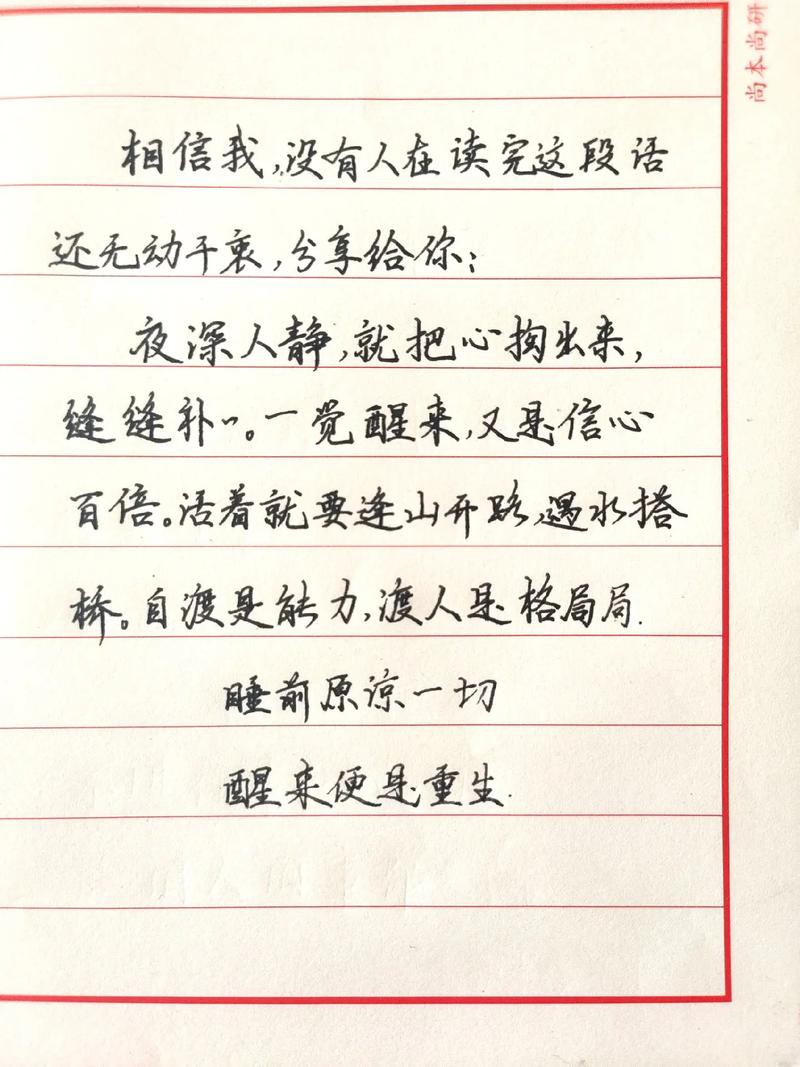 尚本尚研
相信我,没有人在读完这段话
还无动于衷,分享给你:
夜深人静,就把心掏出来,
缝缝补〃。一觉醒来,又是信心
百倍。活着就要逢山开路,遇水搭
桥。自渡是能力,渡人是格局局.
睡前原谅一切
醒来便是重生.